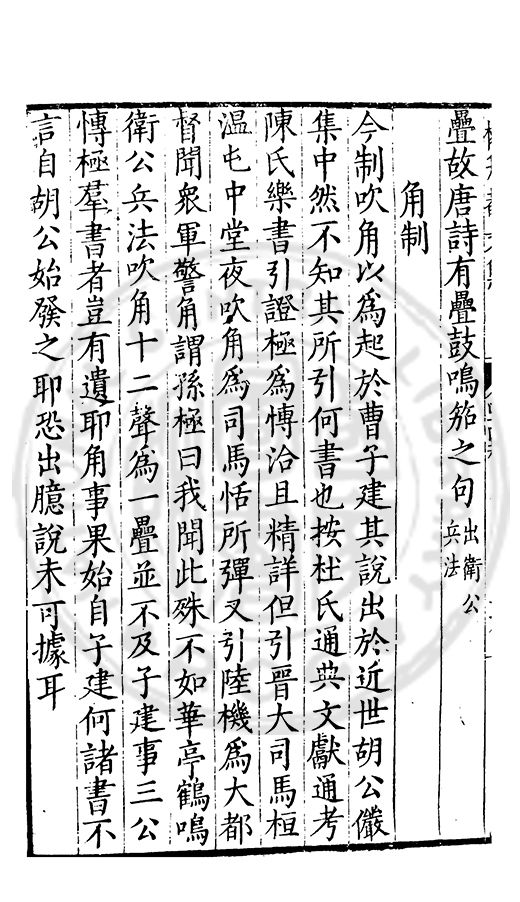 疊故唐詩有疊鼓鳴笳之句出衛公兵法
角制
今制吹角以爲起於曹子建其說出於近世胡公儼
集中然不知其所引何書也按杜氏通典文獻通考
陳氏樂書引證極爲愽洽且精詳但引晉大司馬桓
温屯中堂夜吹角爲司馬恬所彈又引陸機爲大都
督聞衆軍警角謂孫極曰我聞此殊不如華亭鶴鳴
衛公兵法吹角十二聲爲一疊並不及子建事三公
愽極羣書者豈有遺耶角事果始自子建何諸書不
言自胡公始發之耶恐出臆說未可據耳